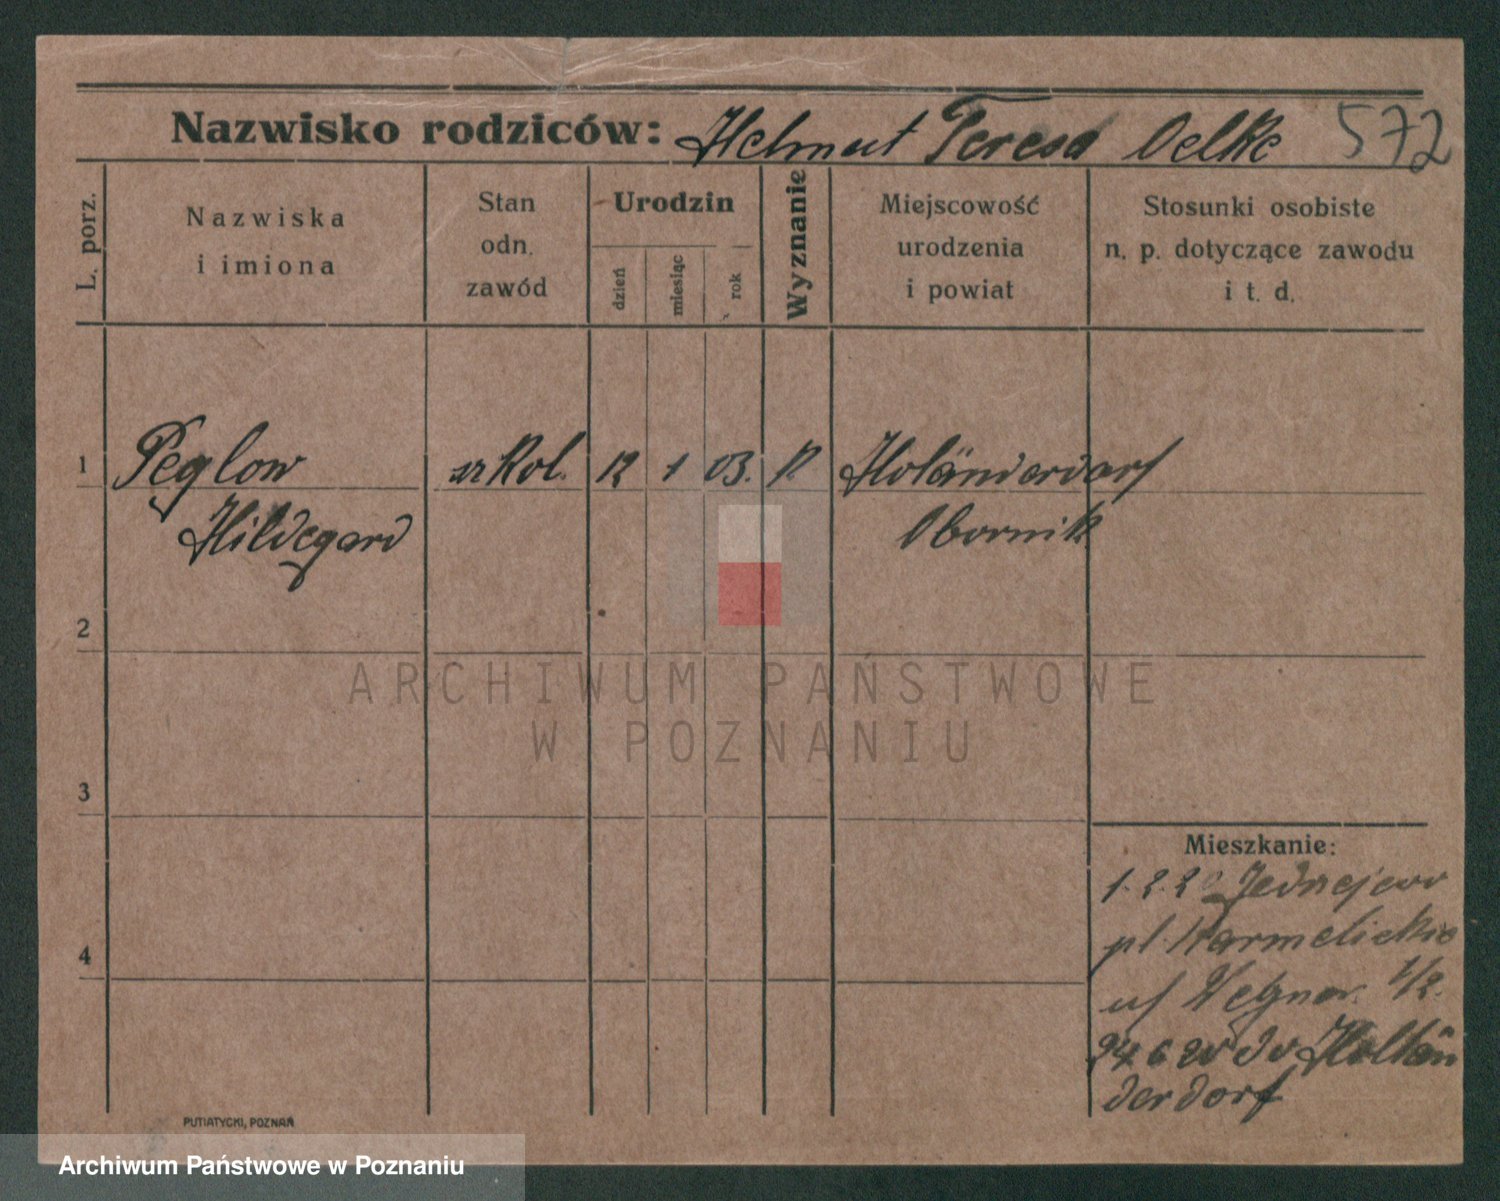 Nazwisko rodziców: Helmut Teresa Oelke 572
L. porz.
Nazwiska
i imiona
Stan
odn.
zawód
Urodzin
dzień
miesiąc
rok
Wyznanie
Miejscowość
urodzenia
i powiat
Stosunki osobiste
n. p. dotyczące zawodu
i t. d.
1 Peglow szkol. 12 1 03. K Holänderdorf
Hildegard Obornik
2
ARCHIWUM PAŃSTWOWE
W POZNANIU
3
Mieszkanie:
1.2.20 Jedrzejewo
pl. Karmelickie
4
1/2.
24 6 20 do Hollän
derdorf
PUTIATYCKI, POZNAŃ
Archiwum Państwowe w Poznaniu